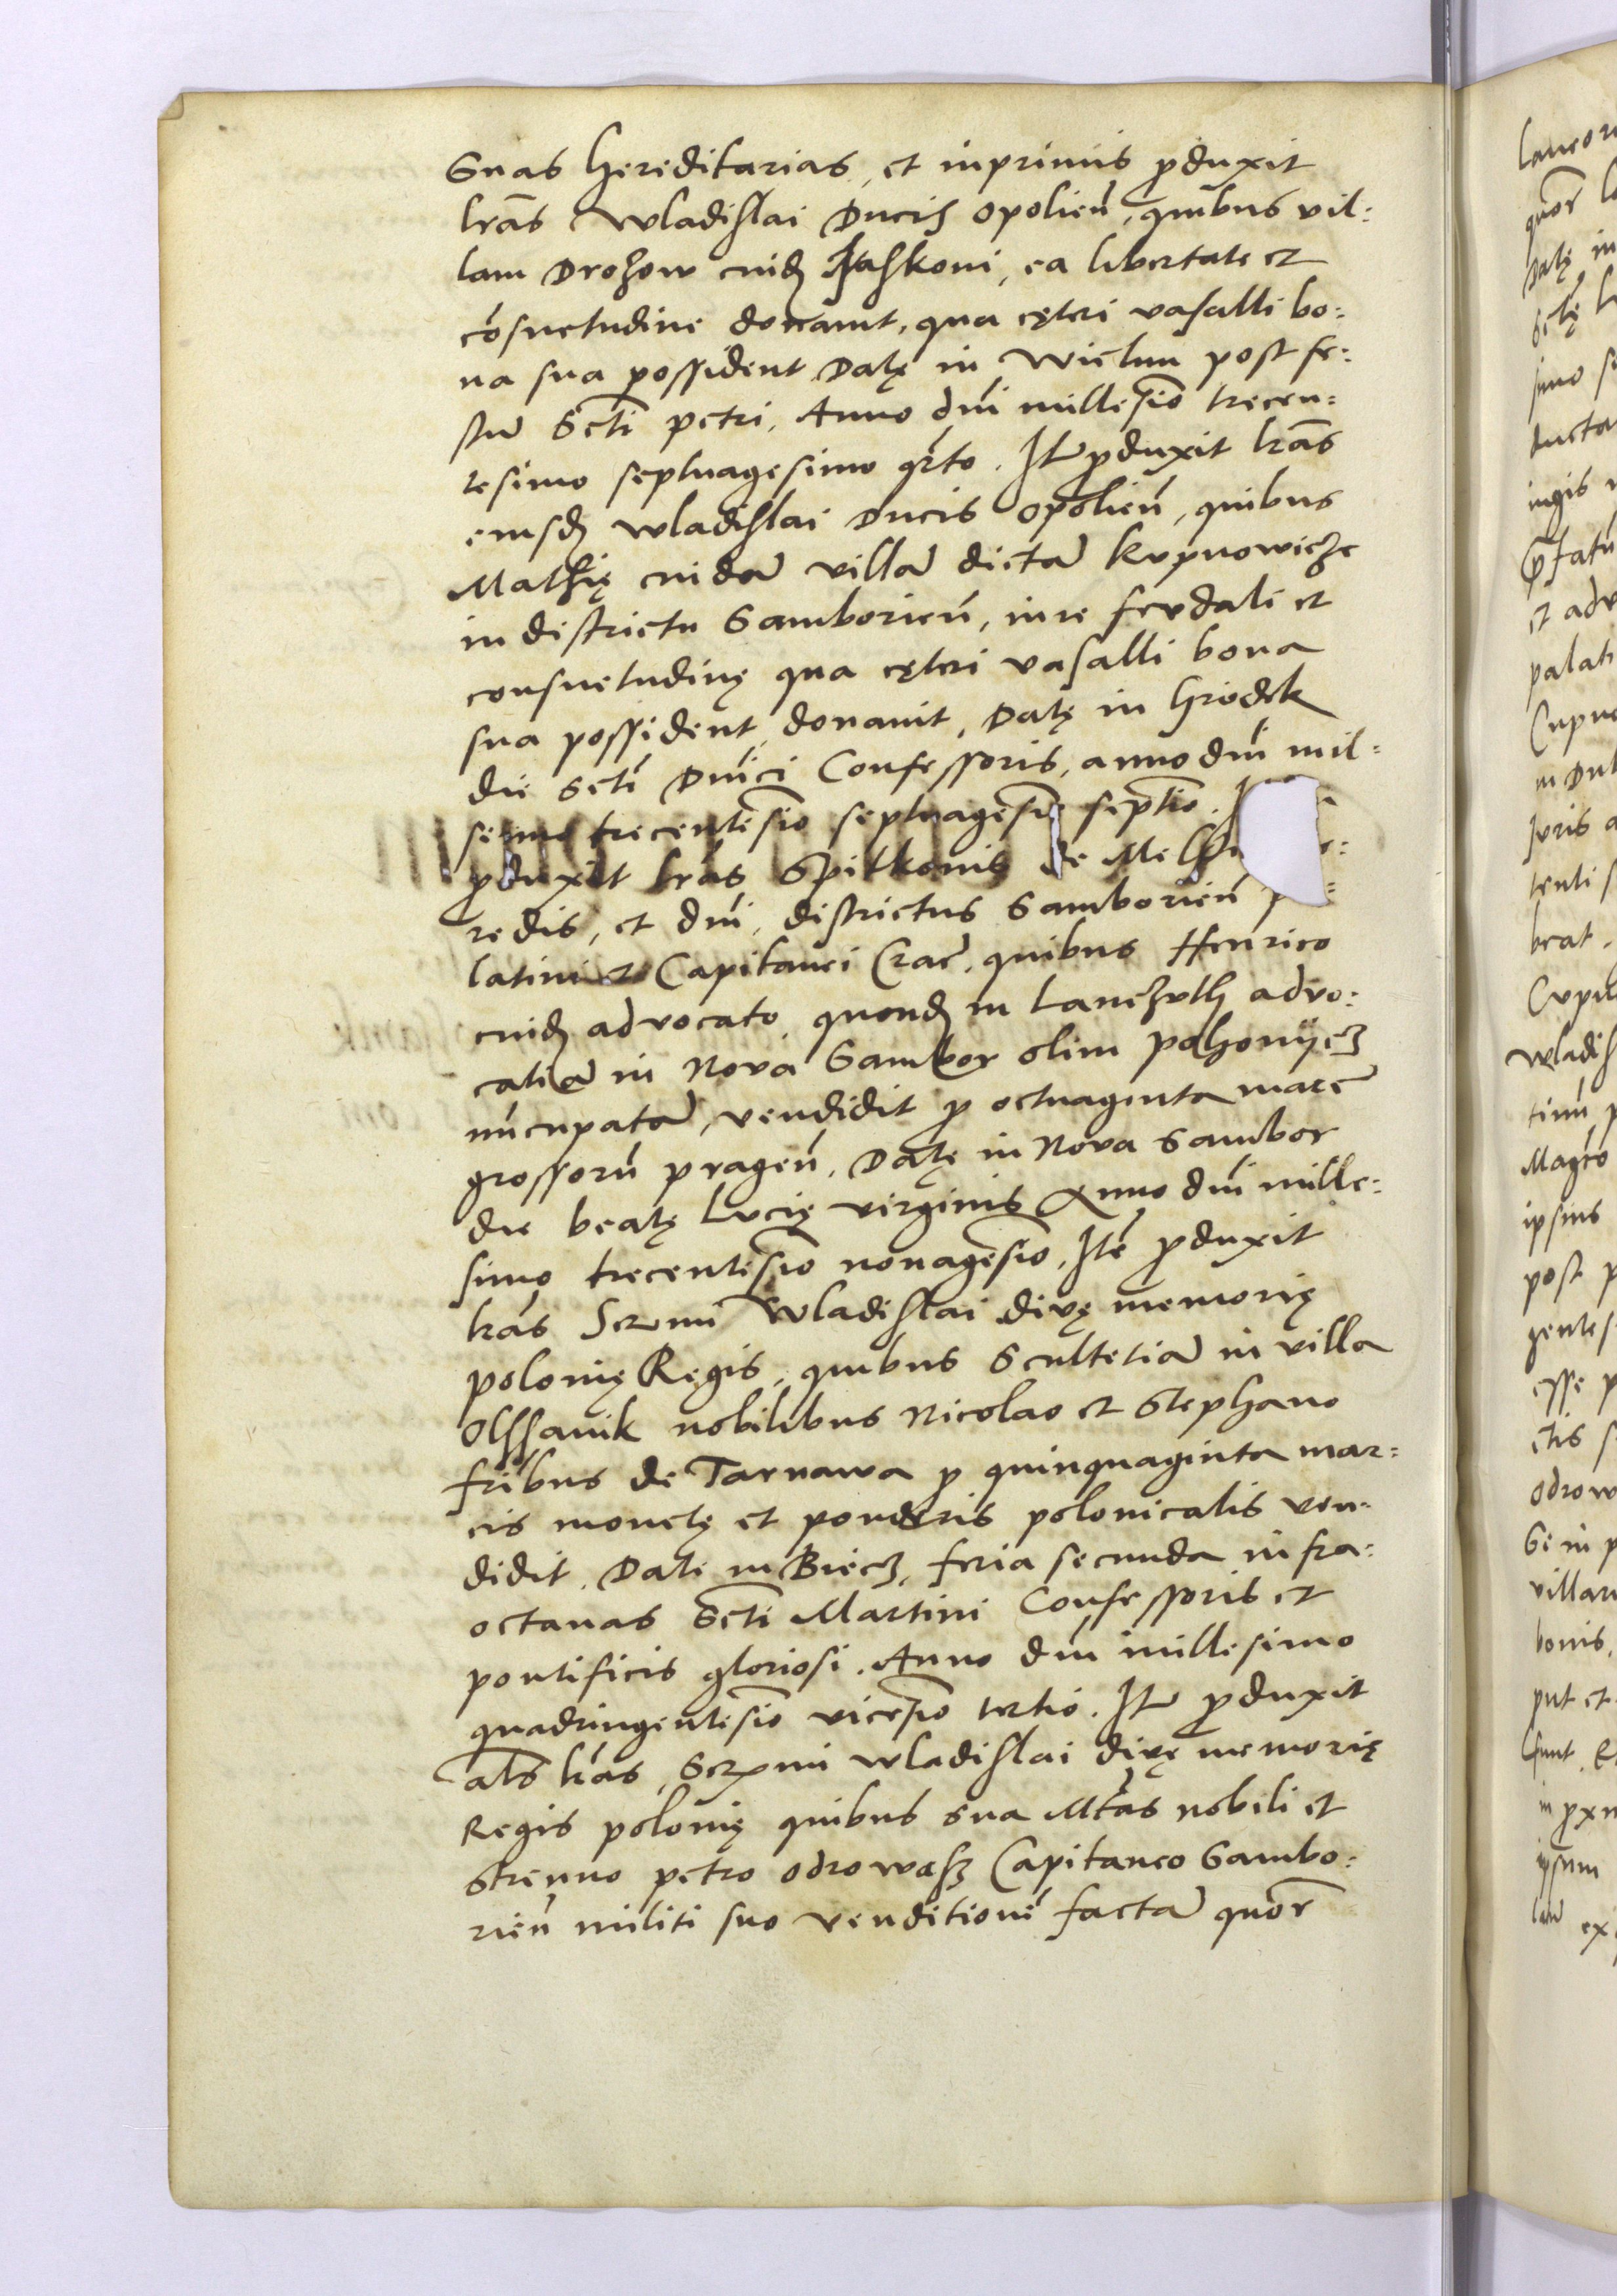 Suas hereditarias, et inprimis ꝓduxit
lrãs Wladislai Ducis Opolień, quibus vil:
lam Drohow cuidȝ Haskoni, ea libertate et
cõsuetudine donauit, qua cęteri vasalli bo:
na sua possident Datę in Wielun post fe:
stũ Scti petri, Anno dni millesĩo trecen:
tesimo septuagesimo qrto. Itẽ ꝓduxit lrãs
eiusdȝ Wladislai Ducis Opolień, quibus
Mathię cuidã villã dictã Kupnowicze
in districtu Samborień, iure feudali et
consuetudinę qua cęteri vasalli bona
sua possident, donauit, Datę in Hrodek
die Scti Dnici Confessoris, anno dni mil:
semo trecentesĩo septuagesĩo septĩo.
ꝓduxit lrãs Spitkonis de Mels
redis, et dni, districtus Samborień
latini et Capitanei Crac̃, quibus Henrico
cuidȝ advocato quondȝ in Lanczuth advo:
catiã in Nova Sambor olim pohonijcz
nũcupatã, vendidit ꝓ octuaginta marc̃
grossorũ prageń, Datę in Nova Sambor
die beatę Lucię virginis Anno dni mille:
simo trecentesĩo nonagesĩo, Itẽ ꝓduxit
lrãs Sermi Wladislai divę memorię
polonię Regis, quibus Scultetiã in villa
Olssanik nobilibus Nicolao et Stephano
fribus de Tarnawa ꝓ quinquaginta mar:
cis monetę et ponderis polonicalis ven:
didit, Dati in Biecz, feria secunda infra:
octauas Scti Martini Confessoris et
pontificis gloriosi. Anno dni millesimo
quadringentesĩo vicesĩo tertio. Itẽ ꝓduxit
als lrãs Serẽmi Wladislai divę memorię
Regis polonię quibus sua Mtas nobili et
strenuo petro Odrowasz Capitaneo Sambo:
rień militi suo venditionẽ factã quor̃